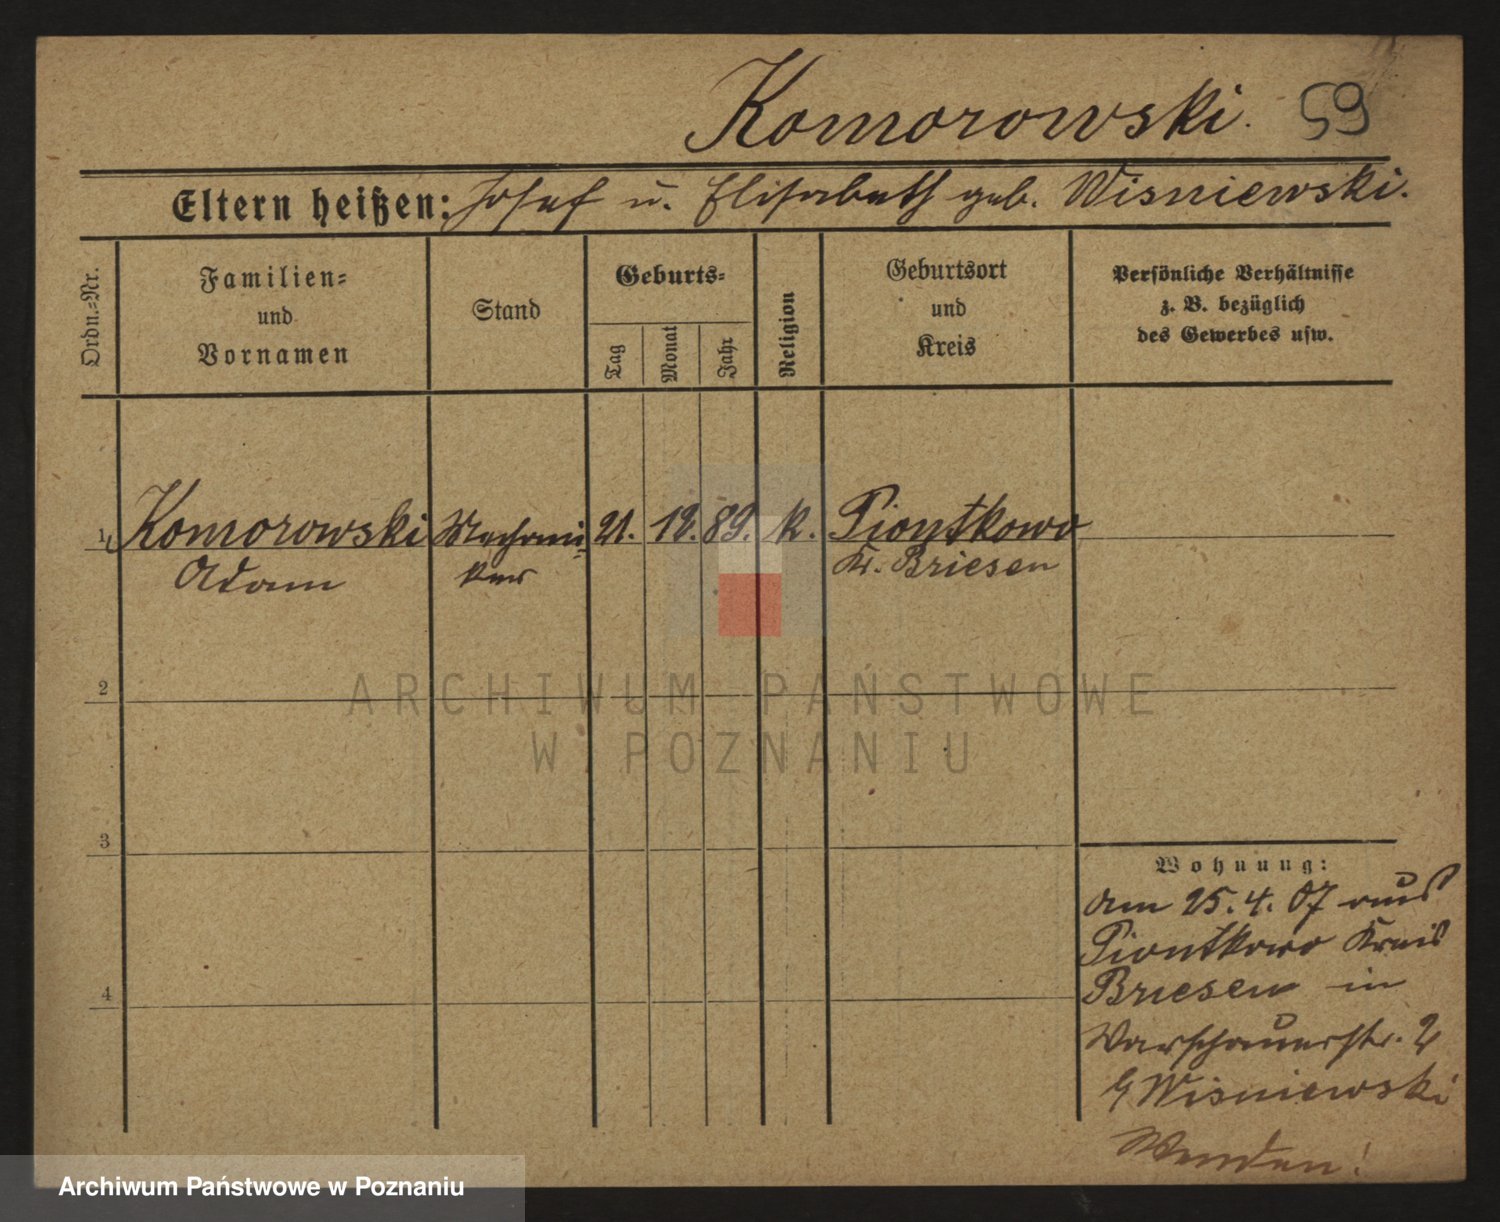 Komorowski. 59
Eltern heißen: Josef u. Elisabeth geb. Wisniewski.
Ordn.-Nr.
Familien-
und
Vornamen
Stand
Geburts-
Tag
Monat
Jahr
Religion
Geburtsort
und
Kreis
Persönliche Verhältnisse
z. B. bezüglich
des Gewerbes usw.
1 Komorowski Mechani- 21. 12. 89. k. Piontkowo
Adam ker Kr. Briesen
2
3
4
Wohnung:
Am 25.4.07 aus
Piontkowo Kreis
Briesen in
Warschauerstr. 2
Wisniewski
Wenden!
ARCHIWUM PAŃSTWOWE
W POZNANIU
Archiwum Państwowe w Poznaniu